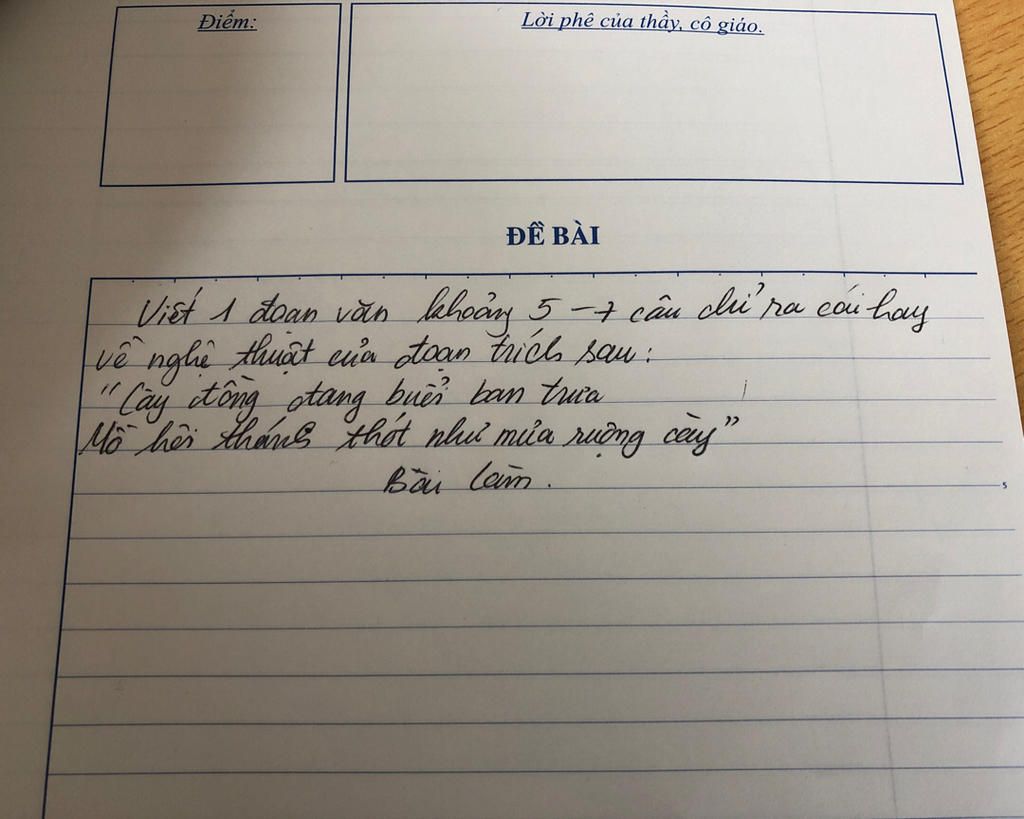 Điểm:
Lời phê của thầy, cô giáo.
ĐỀ BÀI
Viết 1 đoạn văn khoảng 5-7 câu chỉ ra cái hay
về nghệ thuật của đoạn trích sau:
"Cày đồng đang buổi ban trưa
Mồ hôi thánh thót như mưa ruộng cày"
Bài làm.
5